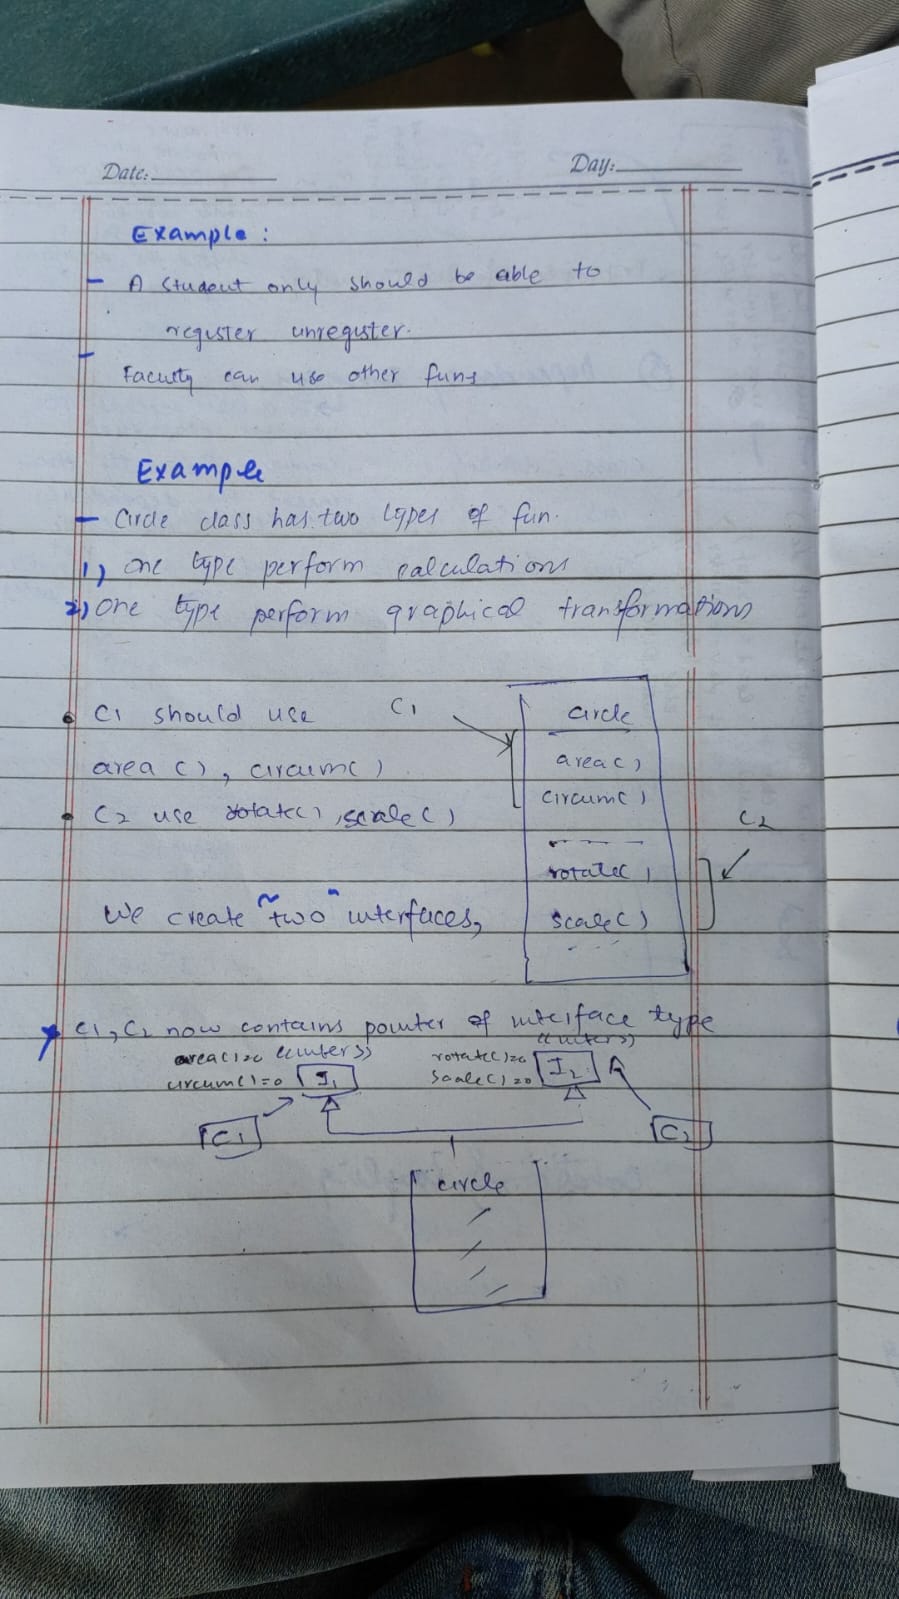 Date:
Day:
Example :
- A Student only should be able to
register unregister.
- Faculty can use other funs
Example
- Circle class has two types of fun.
1) one type perform calculations
2) one type perform graphical transformations
• C1 should use
area(), circum()
• C2 use rotate(), scale()
We create "two" interfaces,
C1
circle
area()
circum()
rotate()
scale()
C2
C1, C2 now contains pointer of interface type
area()=0 <<inter>>
circum()=0 I1
rotate()=0 <<inter>>
Scale()=0 I2
C1
C2
circle